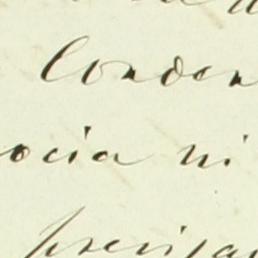 Conden
ocia ni
precisa